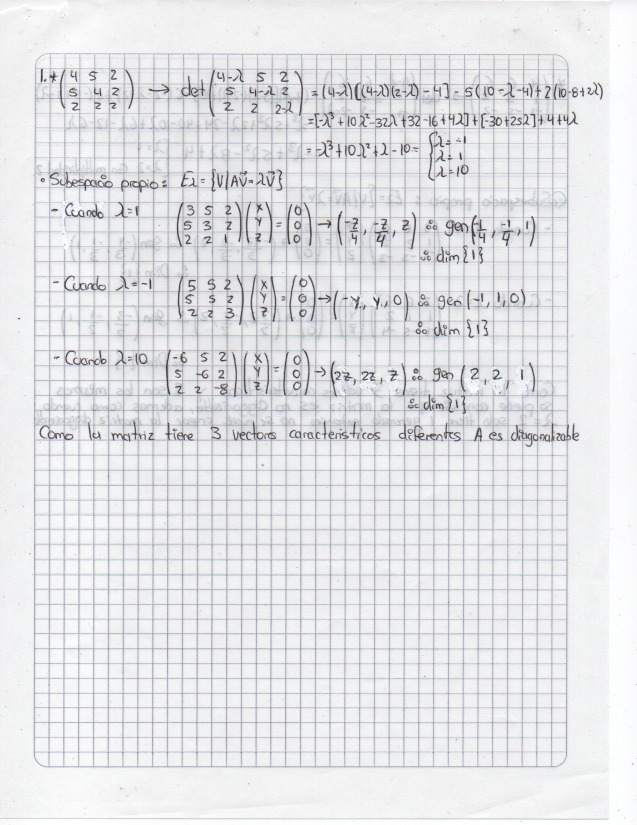 1.* (4 5 2 / 5 4 2 / 2 2 2) → det (4-λ 5 2 / 5 4-λ 2 / 2 2 2-λ) = (4-λ)[(4-λ)(2-λ) - 4] - 5(10 - 2λ - 4) + 2(10 - 8 + 2λ)
= [-λ³ + 10λ² - 32λ + 32 - 16 + 4λ] + [-30 + 25λ] + 4 + 4λ
= -λ³ + 10λ² + λ - 10 = { λ = -1
λ = 1
λ = 10
• Subespacio propio: Eλ = {V | AV⃗ = λV⃗}
- Cuando λ=1 (3 5 2 / 5 3 2 / 2 2 1) (x / y / z) = (0 / 0 / 0) → (-z/4, -z/4, z) ∴ gen(-1/4, -1/4, 1)
∴ dim {1}
- Cuando λ=-1 (5 5 2 / 5 5 2 / 2 2 3) (x / y / z) = (0 / 0 / 0) → (-y, y, 0) ∴ gen (-1, 1, 0)
∴ dim {1}
- Cuando λ=10 (-6 5 2 / 5 -6 2 / 2 2 -8) (x / y / z) = (0 / 0 / 0) → (2z, 2z, z) ∴ gen (2, 2, 1)
∴ dim {1}
Como la matriz tiene 3 vectores caracteristicos diferentes A es diagonalizable